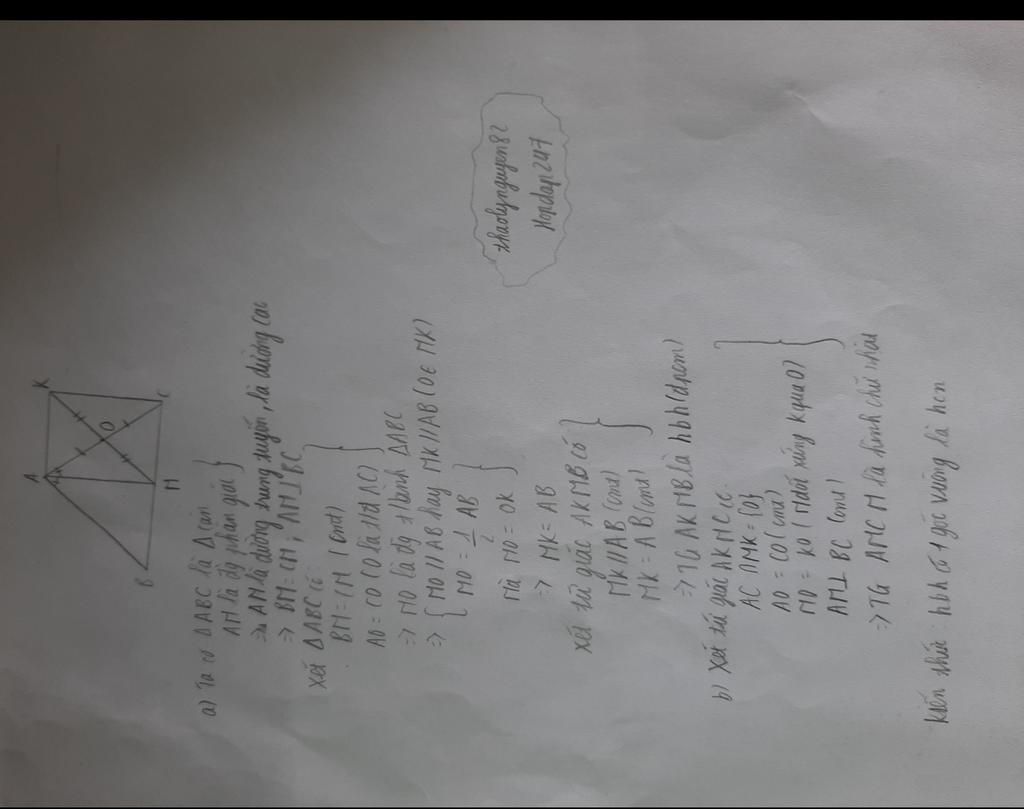 A
K
O
B
M
C
a) Ta có ΔABC là Δ cân
AM là đg phân giác
=> AM là đường trung tuyến, là đường cao
=> BM = CM ; AM ⊥ BC
Xét ΔABC có:
BM = CM (cmt)
AO = CO (O là tđ AC)
=> MO là đg t/bình ΔABC
=> { MO // AB hay MK // AB (O ∈ MK)
MO = 1/2 AB
mà MO = OK
=> MK = AB
Xét tứ giác AKMB có
MK // AB (cmt)
MK = AB (cmt)
=> TG AKMB là hbh (đpcm)
b) Xét tứ giác AKMC c
AC ∩ MK = {O}
AO = CO (cmt)
MO = KO (M đối xứng K qua O)
AM ⊥ BC (cmt)
=> TG AMCM là hình chữ nhật
kiến thức : hbh có 1 góc vuông là hcn
thaolynguyen82
Hoidap247